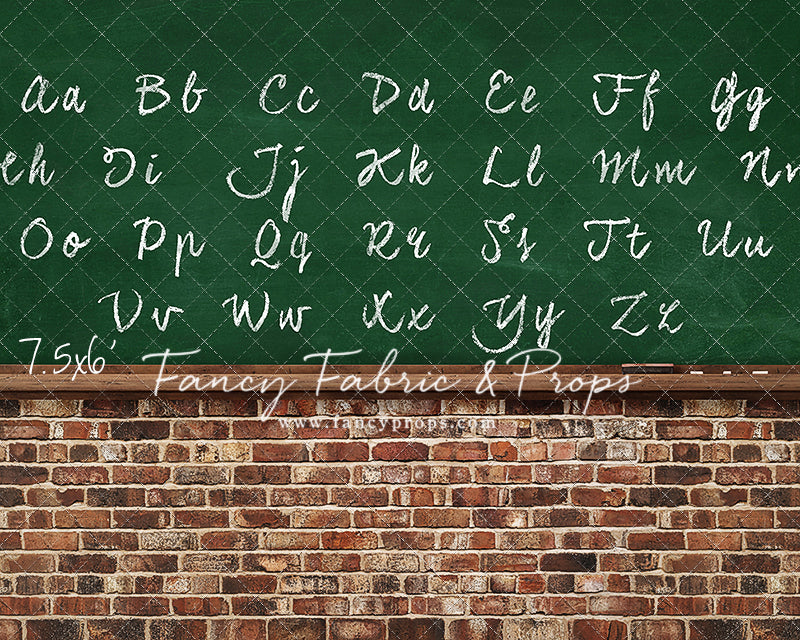 Aa Bb Cc Dd Ee Ff Gg
Ii Jj Kk Ll Mm
Oo Pp Qq Rr Ss Tt Uu
Vv Ww Xx Yy Zz
7.5x6'
Fancy Fabric & Props
www.fancyprops.com